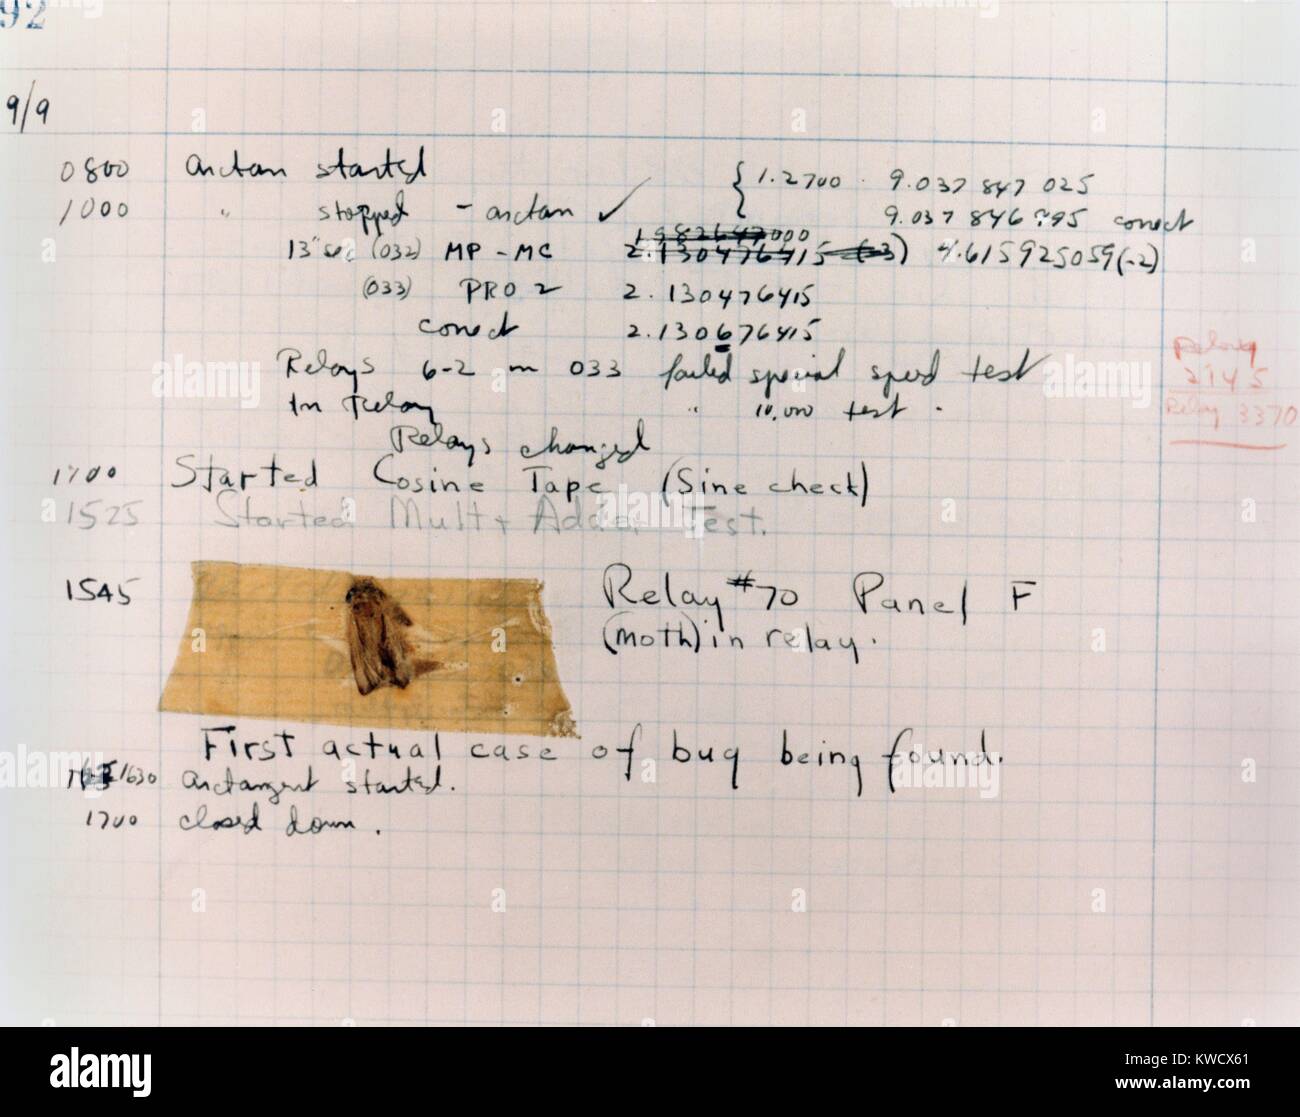 92
9/9
0800 arctan started { 1.2700 · 9.037 847 025
1000 " stopped - arctan ✓ 9.037 846 795 correct
1982647000
(032) MP - MC 2.130476415 (-3) 4.615925059(-2)
(033) PRO 2 2.130476415
correct 2.130676415
Relays 6-2 in 033 failed special speed test
In Relay " 10,000 test .
Relays changed
Relay
2145
Relay 3370
1700 Started Cosine Tape (Sine check)
1525 Started Mult + Adder Test.
1545 Relay #70 Panel F
(moth) in relay.
First actual case of bug being found.
1630 arctangent started.
1700 closed down .
alamy
Image ID: KWCX61
www.alamy.com